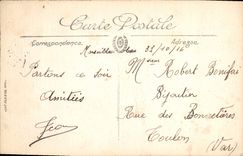 Carte Postale
Correspondance
Adresse
Marseille le 23/10/16
Partons ce soir
Amitiés
Jean
M Robert Bonifai
Bijoutier
Rue des Bonnetières
Toulon
(Var)